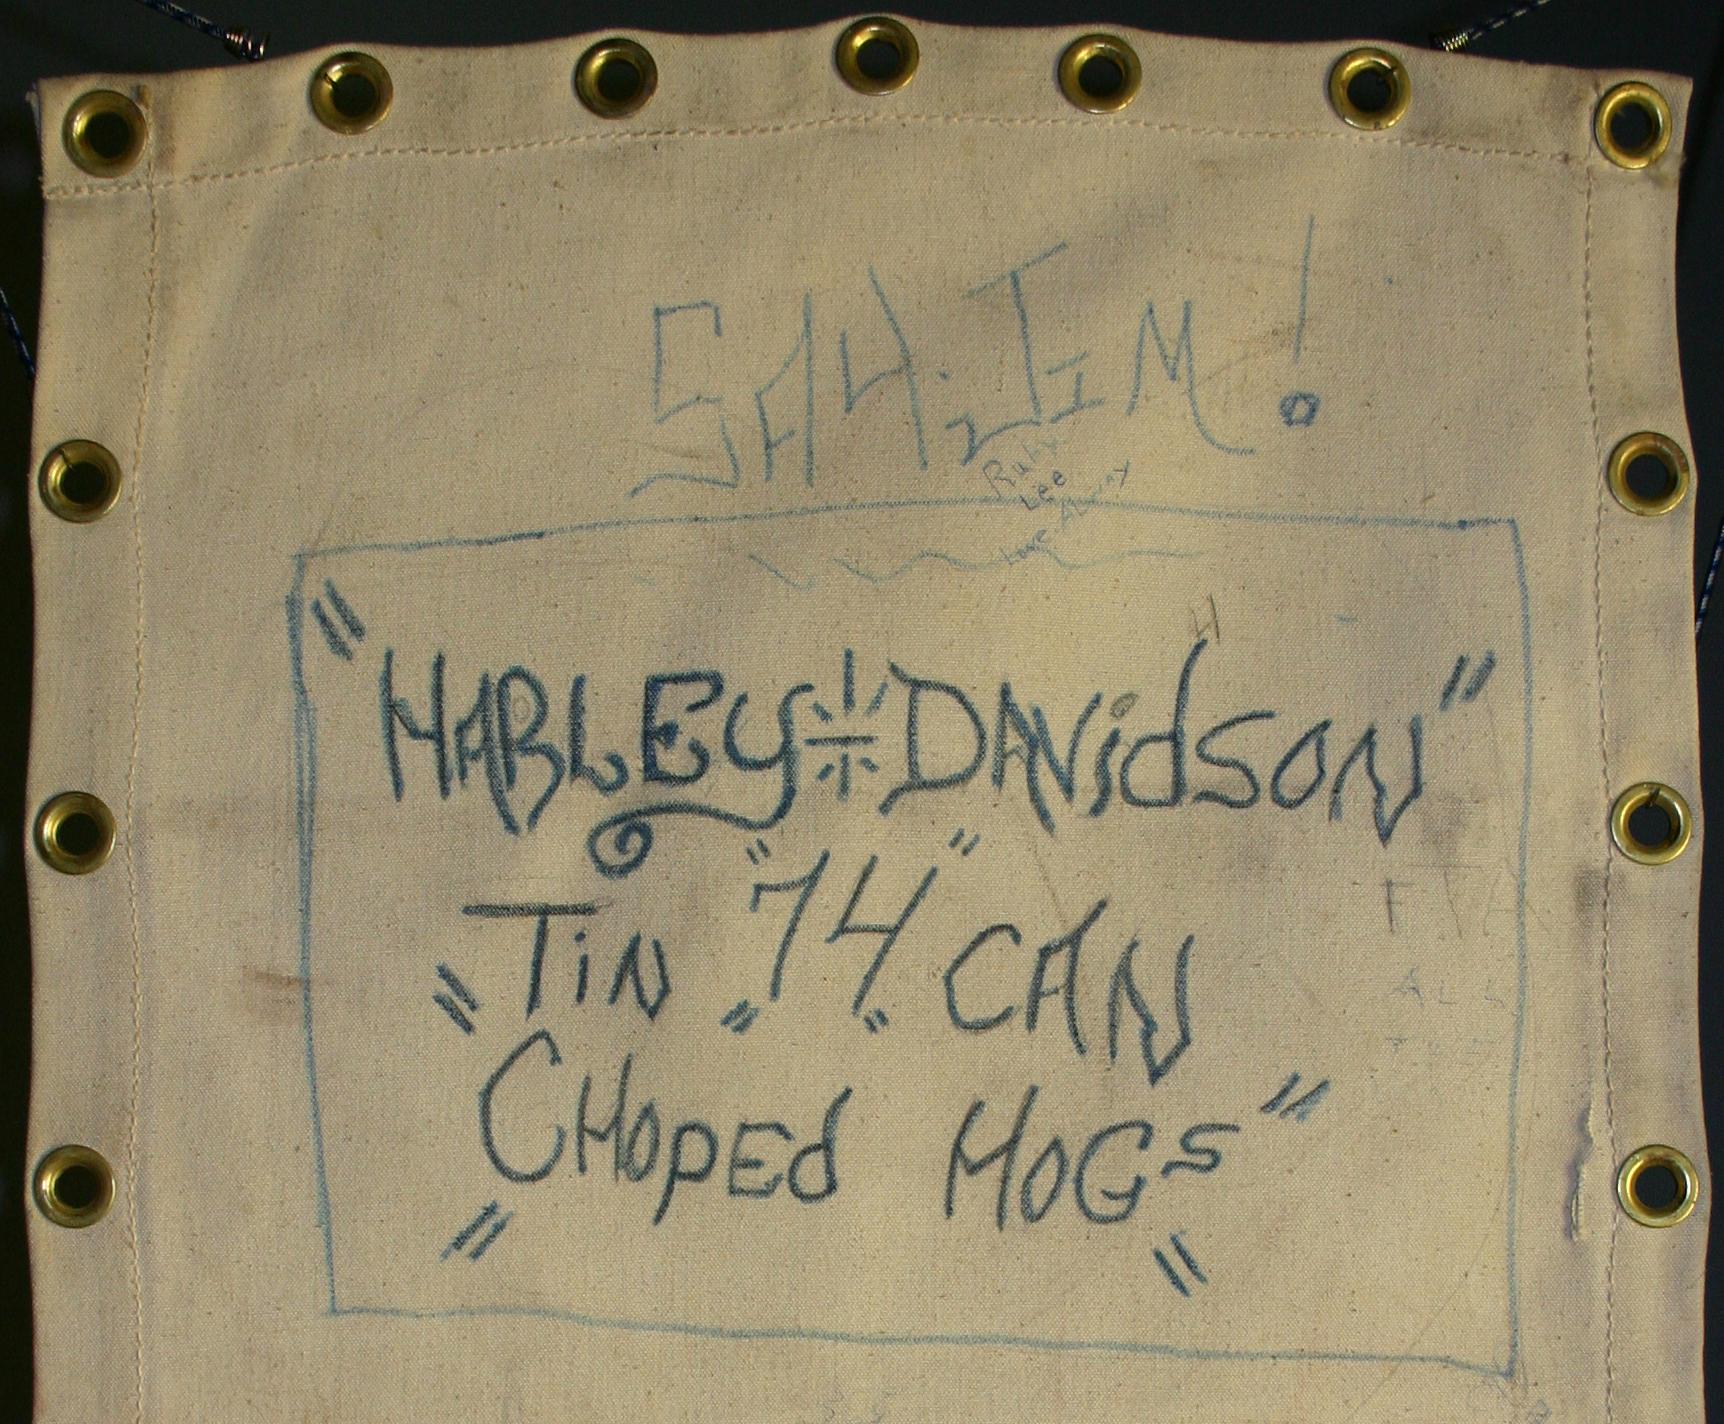 SAY. JIM!
Ruby
Lee
"HARLEY DAVidSON"
"TiN "74" CAN
CHOPEd HOGS"